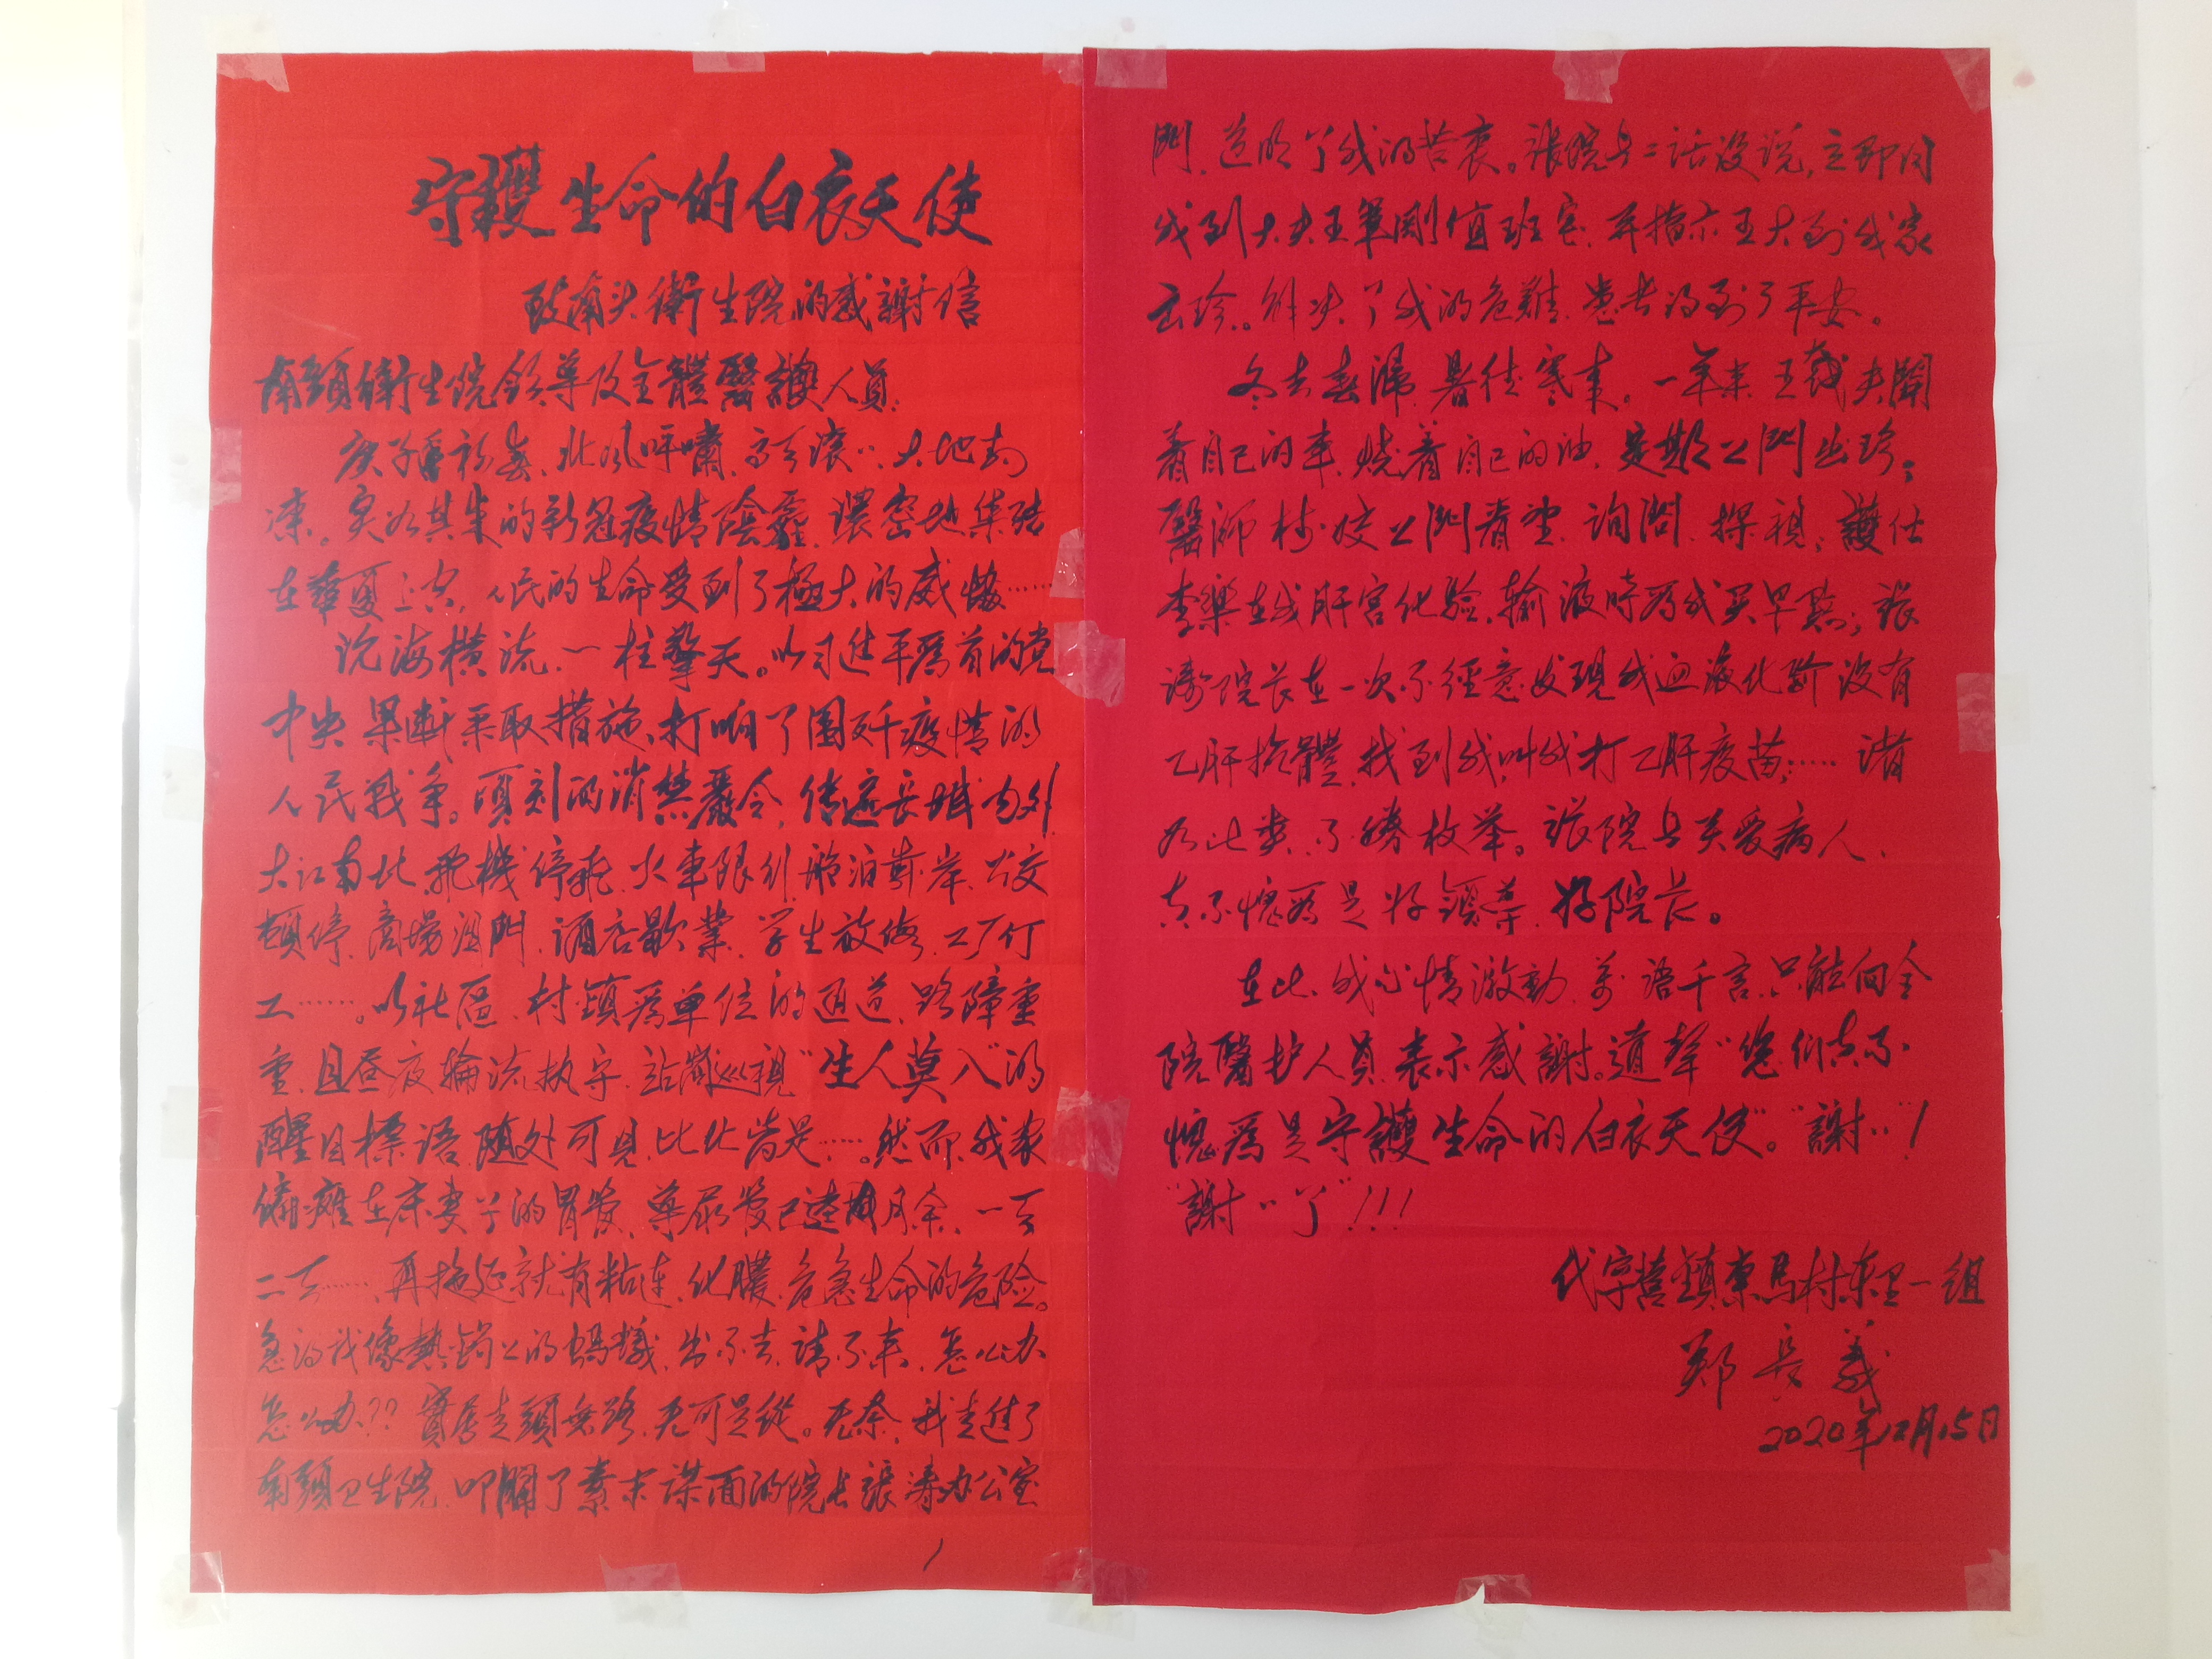 守護生命的白衣天使
致南头衛生院的感謝信
南頭衛生院領導及全體醫護人員:
庚子初春、北风呼嘯、大地封
凍。突如其来的新冠疫情陰霾、濃密地集結
在華夏上空,人民的生命受到了極大的威脅……
沧海横流、一柱擎天。以习近平為首的党
中央果斷采取措施、打响了圍歼疫情的
人民戰争。頃刻的消禁嚴令,传遍長城内外
大江南北、飛機停飛、火車限行、船泊靠岸、公交
頓停、商場闭門、酒店歇業、学生放假、工厂停
工……。以社區、村鎮為單位的通道、路障重
重、且昼夜輪流执守、站崗巡視"生人莫入"的
醒目標語、随处可見、比比皆是……。然而、我家
偏癱在床妻子的胃管、導尿管已逾月余、一天
二天……、再拖延就有粘連、化膿、危急生命的危险。
急的我像熱鍋上的螞蟻、出不去、請不来、怎么办
怎么办??實属走頭無路、无可是從。无奈、我走進了
南頭卫生院、叩開了素未谋面的院长張涛办公室
1
門、道明了我的苦衷。張院長二话没说,立即同
我到大夫王軍剛值班室、并指示王大到我家
出珍。解决了我的危難、患者得到了平安。
冬去春歸、暑往寒来。一年来、王大夫開
着自己的車、燒着自己的油、定期上門出珍;
醫師 上門看望、询問、探視;護仕
李樂在我肝宫化验、输液時為我买早點;張
涛院长在一次不經意发現我血液化驗没有
乙肝抗體、找到我叫我打乙肝疫苗;……諸
如此类、不勝枚举。張院長关爱病人、
真不愧為是好領導、好院长。
在此、我心情激動、萬語千言、只能向全
院醫护人員、表示感謝。道聲"您们真不
愧為是守護生命的白衣天使"。"謝〃"!
"謝〃了"!!!
代字营鎮東馬村东里一组
郑長義
2020年12月15日